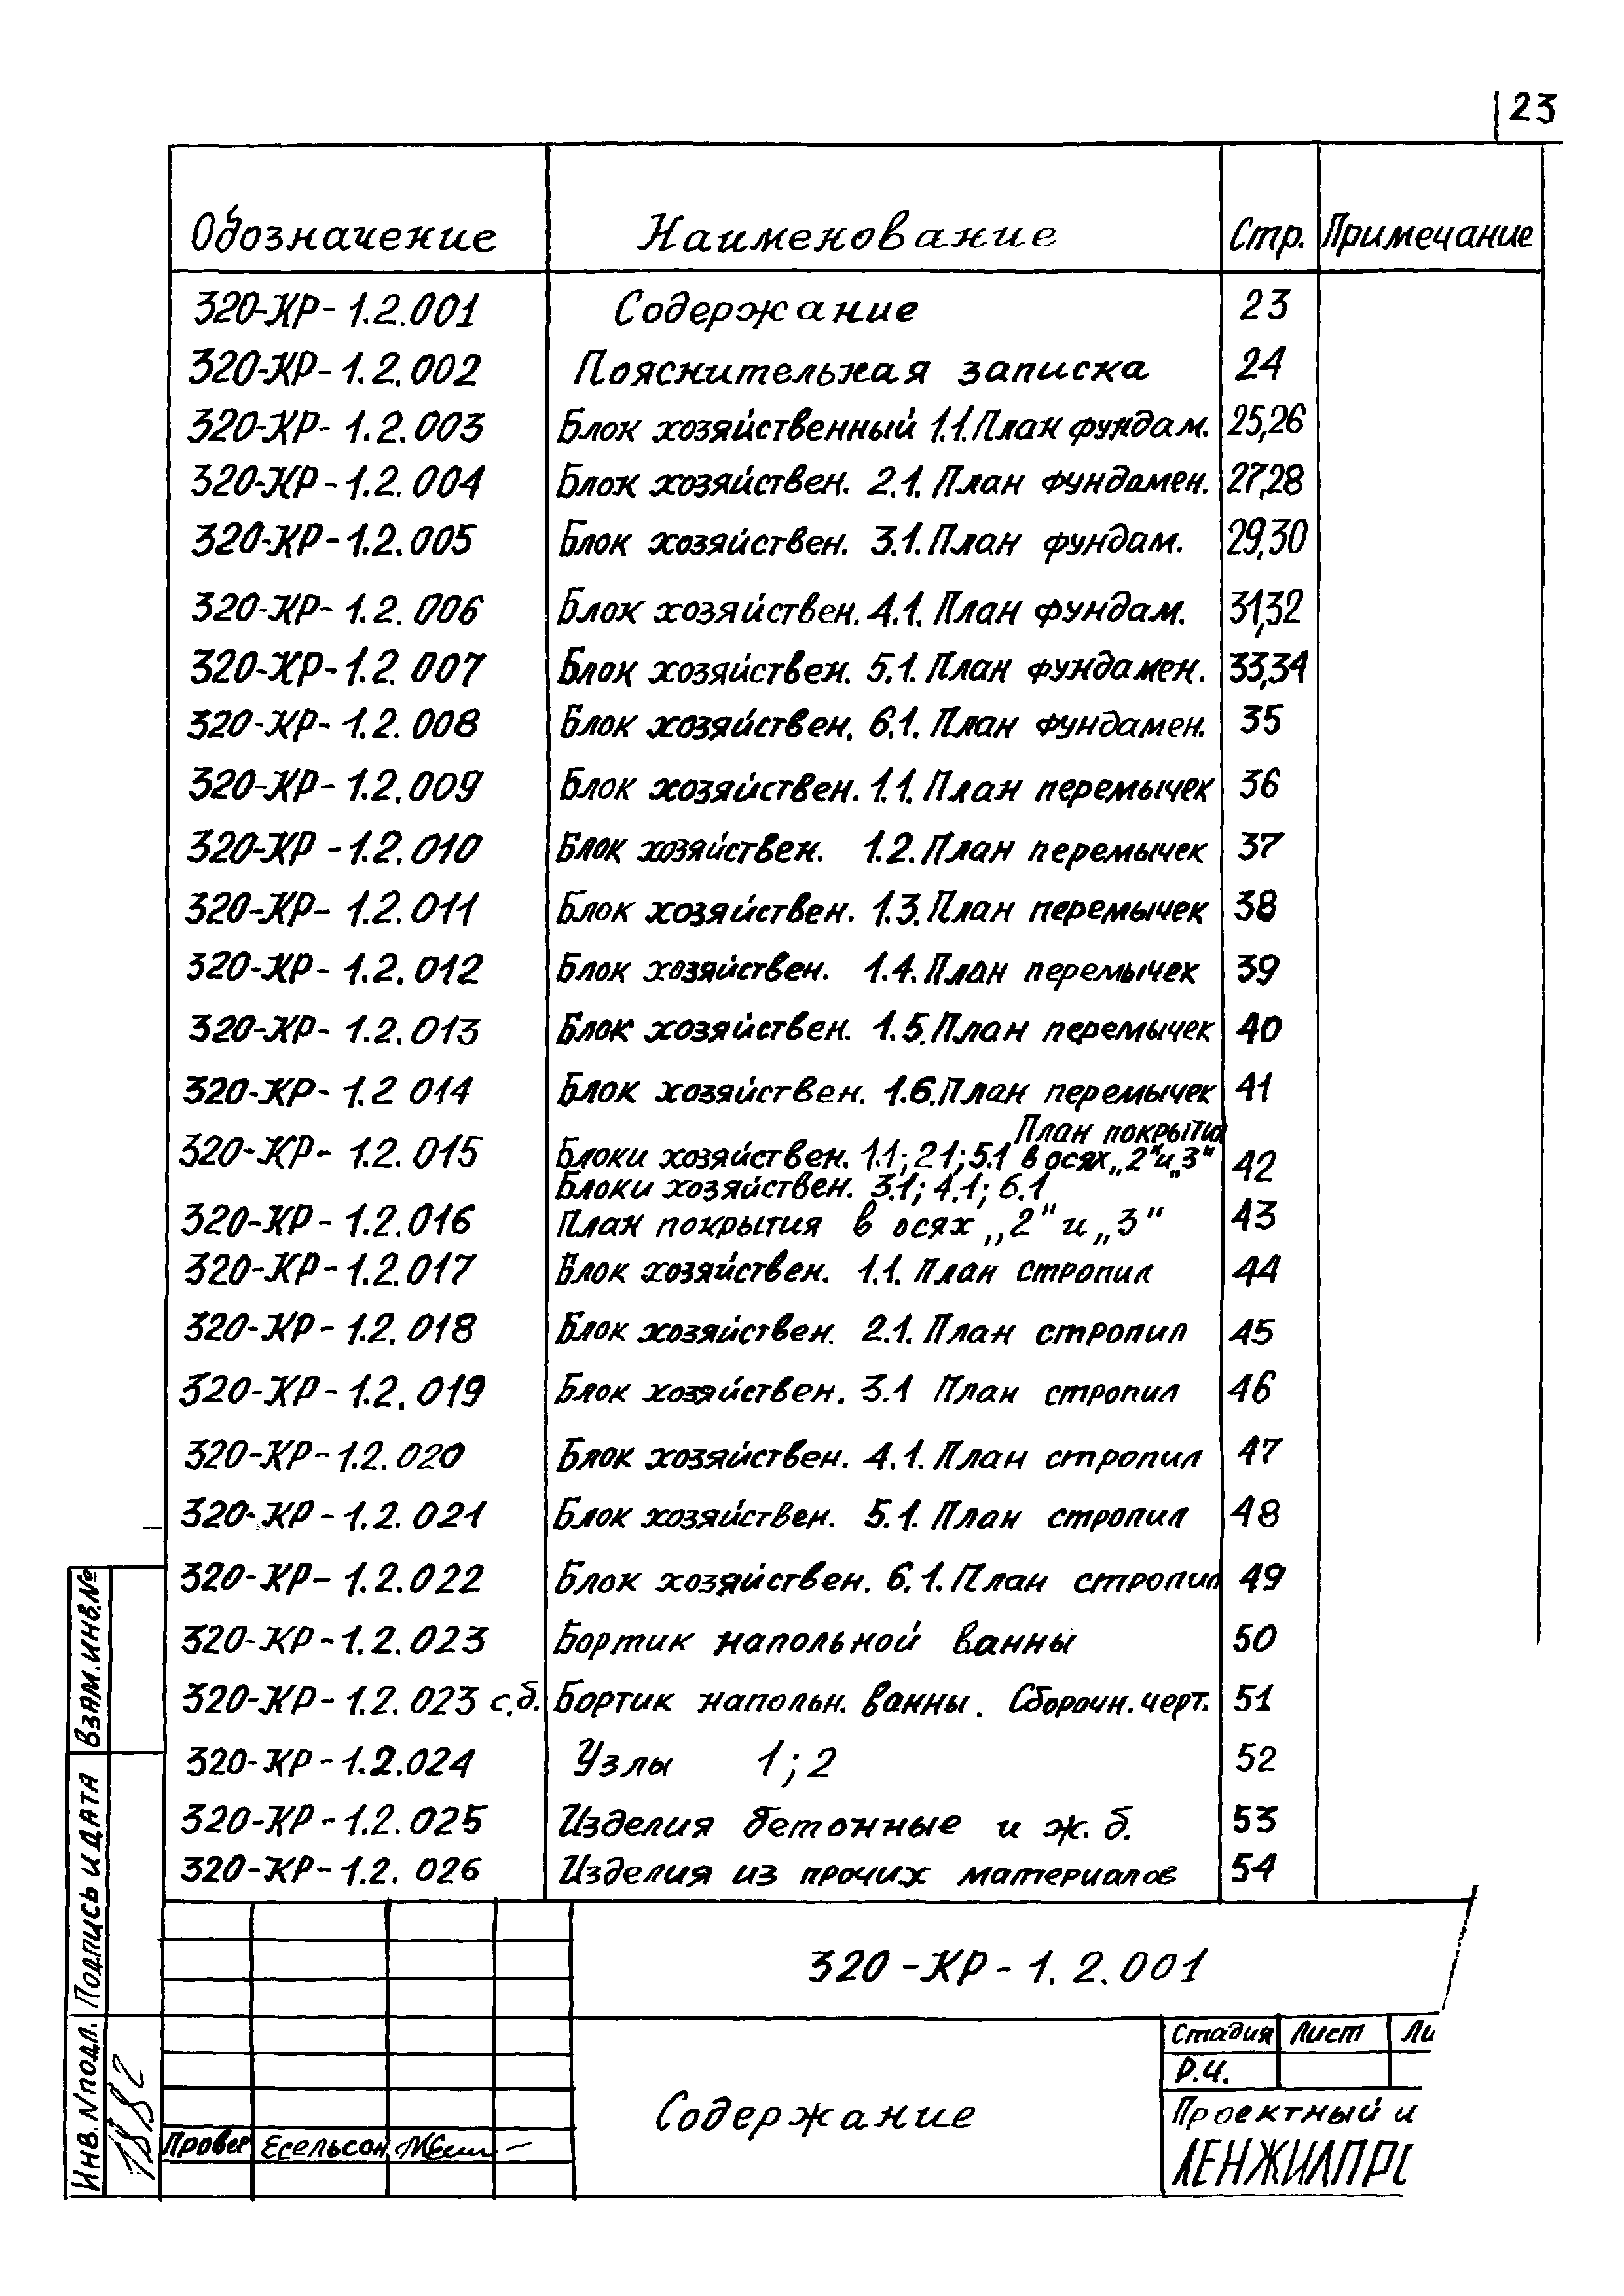 23
Обозначение Наименование Стр. Примечание
320-КР-1.2.001 Содержание 23
320-КР-1.2.002 Пояснительная записка 24
320-КР-1.2.003 Блок хозяйственный 1.1. План фундам. 25,26
320-КР-1.2.004 Блок хозяйствен. 2.1. План фундамен. 27,28
320-КР-1.2.005 Блок хозяйствен. 3.1. План фундам. 29,30
320-КР-1.2.006 Блок хозяйствен. 4.1. План фундам. 31,32
320-КР-1.2.007 Блок хозяйствен. 5.1. План фундамен. 33,34
320-КР-1.2.008 Блок хозяйствен. 6.1. План фундамен. 35
320-КР-1.2.009 Блок хозяйствен. 1.1. План перемычек 36
320-КР-1.2.010 Блок хозяйствен. 1.2. План перемычек 37
320-КР-1.2.011 Блок хозяйствен. 1.3. План перемычек 38
320-КР-1.2.012 Блок хозяйствен. 1.4. План перемычек 39
320-КР-1.2.013 Блок хозяйствен. 1.5. План перемычек 40
320-КР-1.2 014 Блок хозяйствен. 1.6. План перемычек 41
План покрытия
320-КР-1.2.015 Блоки хозяйствен. 1.1; 2.1; 5.1 в осях „2" и „3" 42
Блоки хозяйствен. 3.1; 4.1; 6.1
320-КР-1.2.016 План покрытия в осях „2" и „3" 43
320-КР-1.2.017 Блок хозяйствен. 1.1. План стропил 44
320-КР-1.2.018 Блок хозяйствен. 2.1. План стропил 45
320-КР-1.2.019 Блок хозяйствен. 3.1 План стропил 46
320-КР-1.2.020 Блок хозяйствен. 4.1. План стропил 47
320-КР-1.2.021 Блок хозяйствен. 5.1. План стропил 48
320-КР-1.2.022 Блок хозяйствен. 6.1. План стропил 49
320-КР-1.2.023 Бортик напольной ванны 50
320-КР-1.2.023 с.б. Бортик напольн. ванны. Сборочн. черт. 51
320-КР-1.2.024 Узлы 1; 2 52
320-КР-1.2.025 Изделия бетонные и ж.б. 53
320-КР-1.2.026 Изделия из прочих материалов 54
320-КР-1.2.001
Содержание
Стадия Лист Ли
Р.Ч.
Проектный и
ЛЕНЖИЛПРО
Провер Есельсон
Взам.инв.№
Подпись и дата
Инв.N подл.
1882